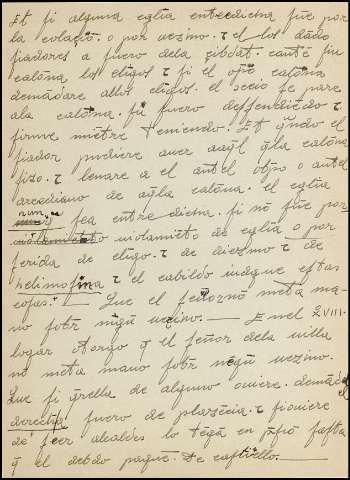 Et si alguna eglia entredicha fue por
la colaçiõ. o por vezino. τ el los dãdo
fiadores a fuero dela çibdat.
calõna los cligos τ si el obpo calõna
demãdare allos cligos. el secio se pare
ala calõna. su fuero deffendiẽdo τ
firme miẽtre teniendo. Et q̃ndo el
fiador pudiere auer aq̃l q̃ la calõna
fizo. τ leuare a el antel obpo o antel
arcediano de aq̃la calõna. el eglia
sea entre dicha. si nõ fue por
violamiẽto de eglia o por
ferida de cligo. τ de diezmo τ de
helimosina τ el cabildo iudgue estas
cosas. — Que el señor nõ meta ma-
no sobr nigũ vezino. — Enel XVIII.
logar Atorgo q̃ el señor dela uilla
nõ meta mano sobr nẽgũ vezino.
Que si q̃rella de alguno ouiere. demãde
derecho fuero de plazẽcia. τ si ouiere
de seer alcaldes lo tẽgã en psiõ fasta
q̃ el debdo pague. De castiello.